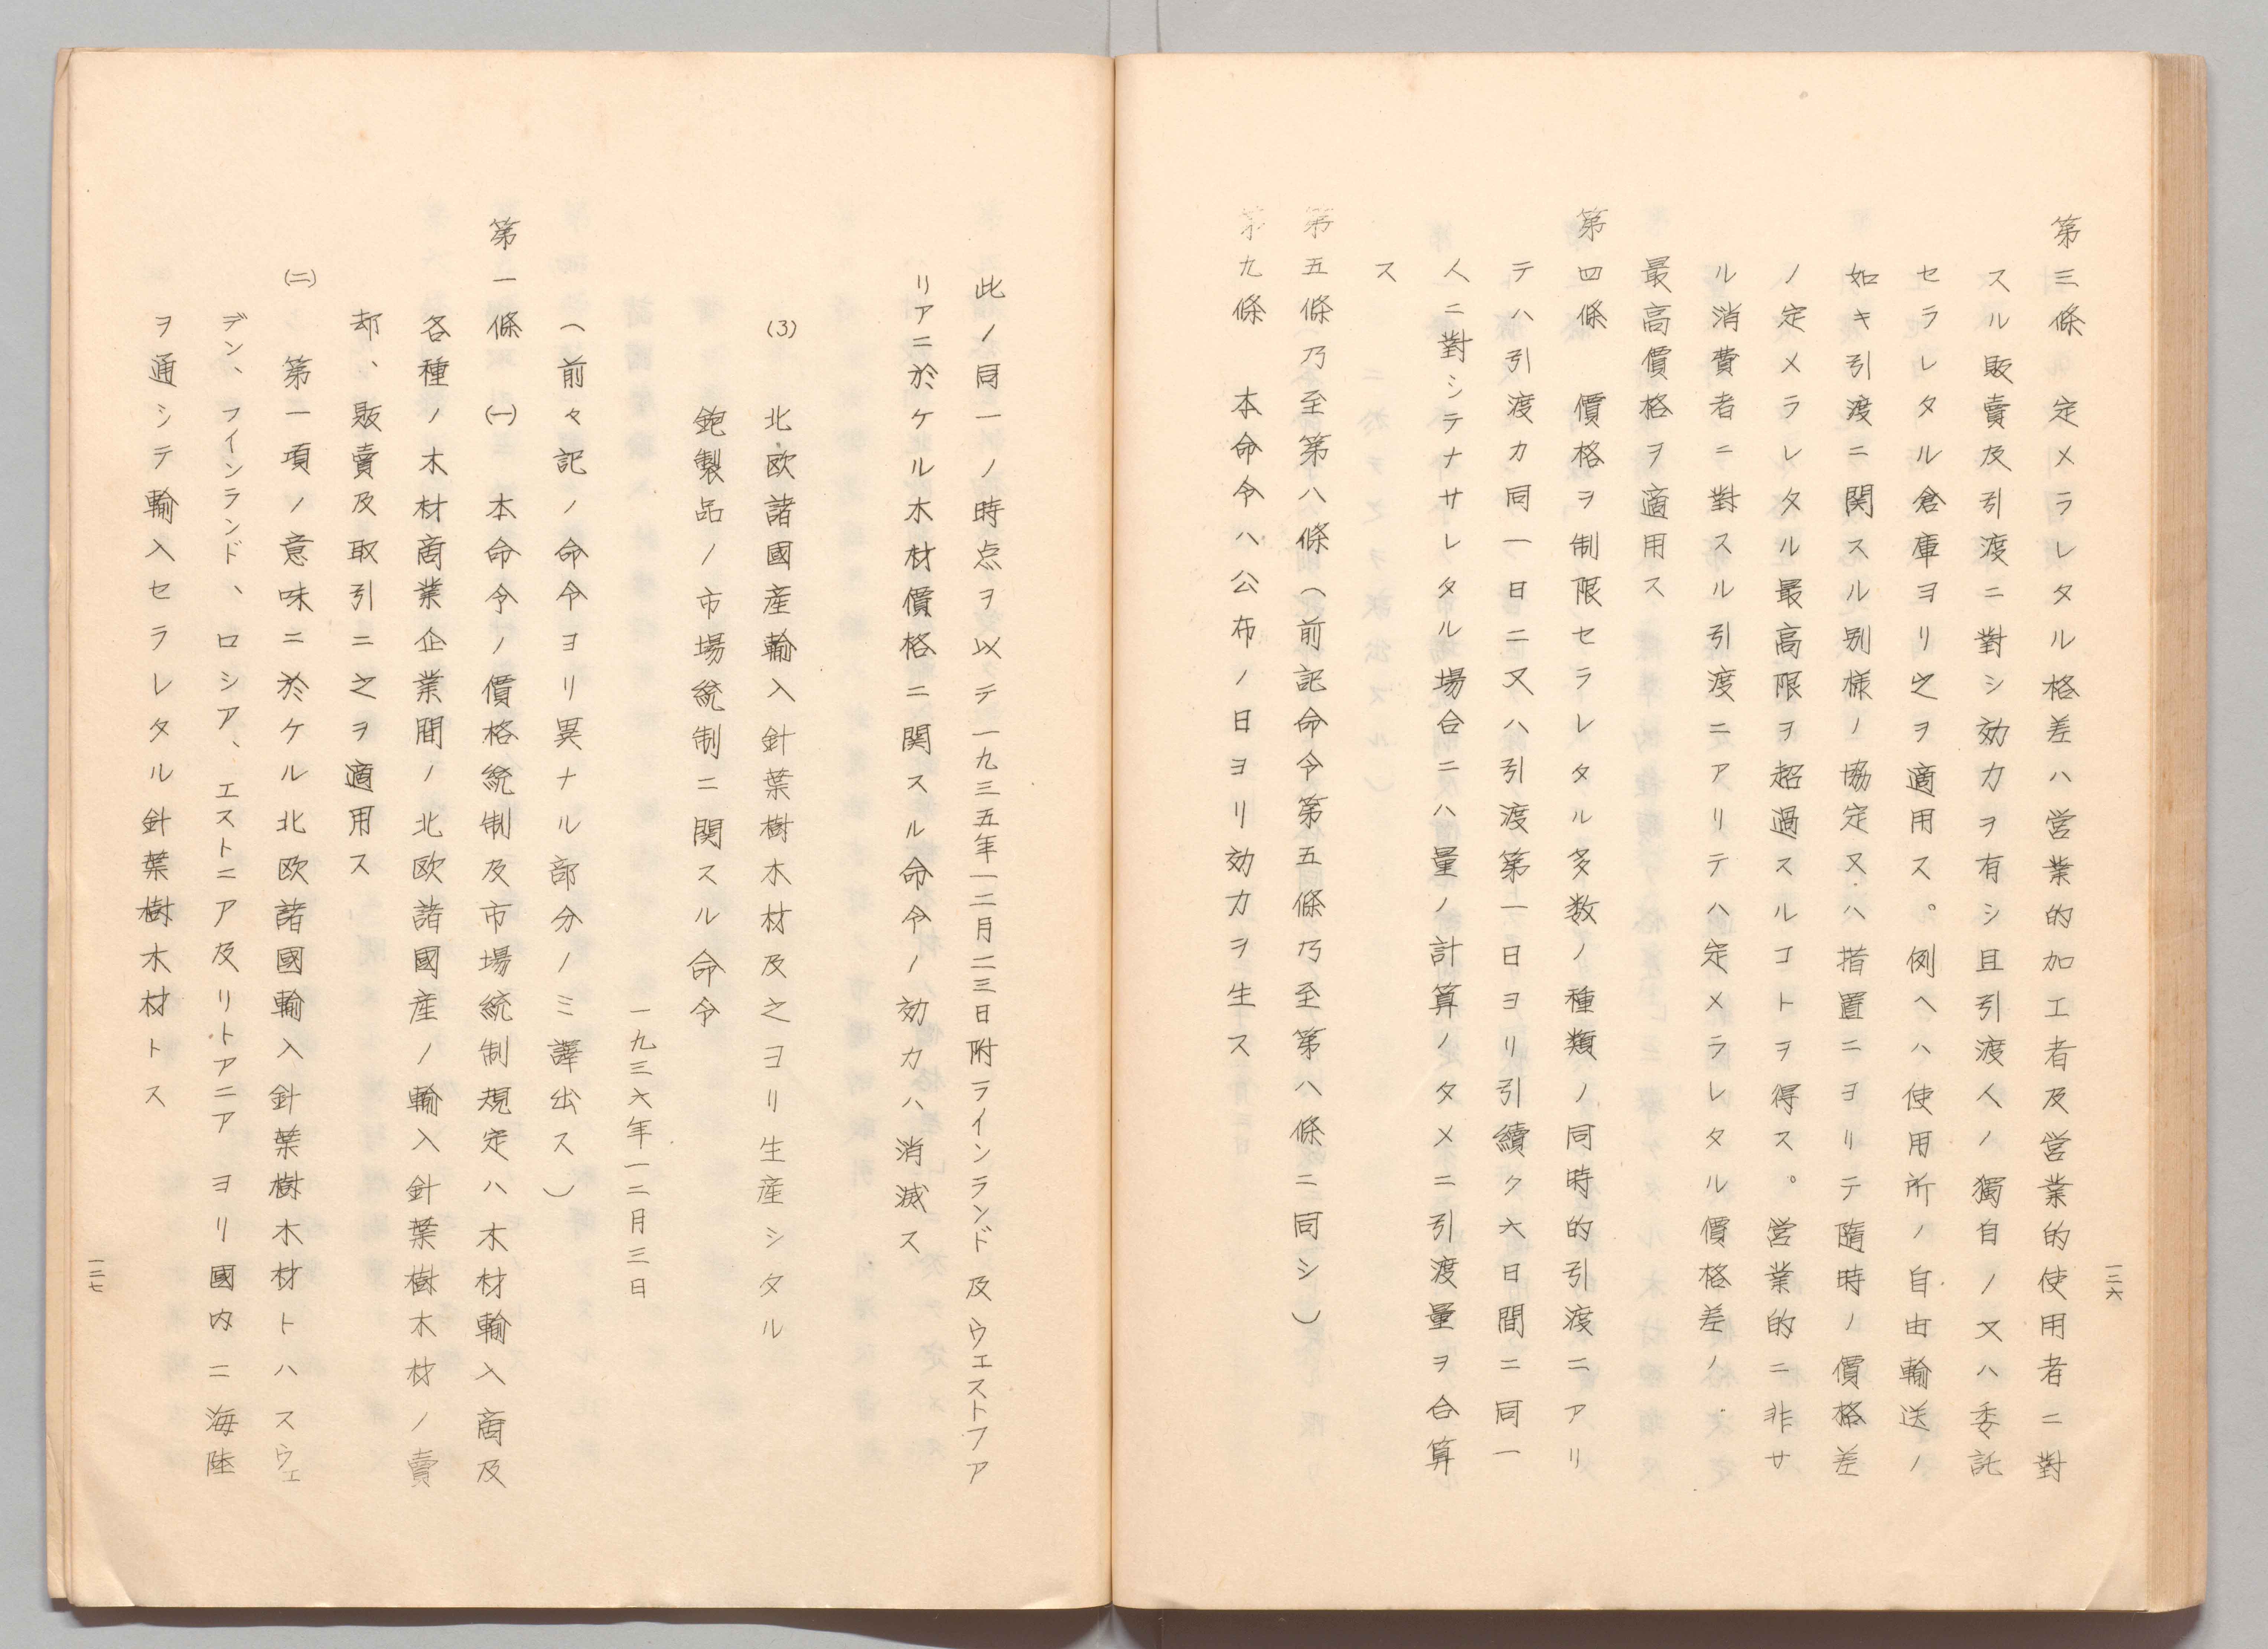 一二六
第三條　定メラレタル格差ハ営業的加工者及営業的使用者ニ對
スル販賣及引渡ニ對シ効力ヲ有シ且引渡人ノ獨自ノ又ハ委託
セラレタル倉庫ヨリ之ヲ適用ス。例ヘハ使用所ノ自由輸送ノ
如キ引渡ニ関スル別様ノ協定又ハ措置ニヨリテ隨時ノ價格差
ノ定メラレタル最高限ヲ超過スルコトヲ得ス。営業的ニ非サ
ル消費者ニ對スル引渡ニアリテハ定メラレタル價格差ノ
最高價格ヲ適用ス
第四條　價格ヲ制限セラレタル多数ノ種類ノ同時的引渡ニアリ
テハ引渡カ同一日ニ又ハ引渡第一日ヨリ引續ク六日間ニ同一
人ニ對シテナサレタル場合ニハ量ノ計算ノタメニ引渡量ヲ合算
ス
第五條乃至第八條（前記命令第五條乃至第八條ニ同シ）
第九條　本命令ハ公布ノ日ヨリ効力ヲ生ス
此ノ同一ノ時点ヲ以テ一九三五年一二月二三日附ラインランド及ウエストフア
リアニ於ケル木材價格ニ関スル命令ノ効力ハ消滅ス
(3)　北欧諸國産輸入針葉樹木材及之ヨリ生産シタル
鉋製品ノ市場統制ニ関スル命令
一九三六年一二月三日
（前々記ノ命令ヨリ異ナル部分ノミ譯出ス）
第一條　㈠　本命令ノ價格統制及市場統制規定ハ木材輸入商及
各種ノ木材商業企業間ノ北欧諸國産ノ輸入針葉樹木材ノ賣
却、販賣及取引ニ之ヲ適用ス
㈡　第一項ノ意味ニ於ケル北欧諸國輸入針葉樹木材トハスウエ
デン、フインランド、ロシア、エストニア及リトアニアヨリ國内ニ海陸
ヲ通シテ輸入セラレタル針葉樹木材トス
一二七